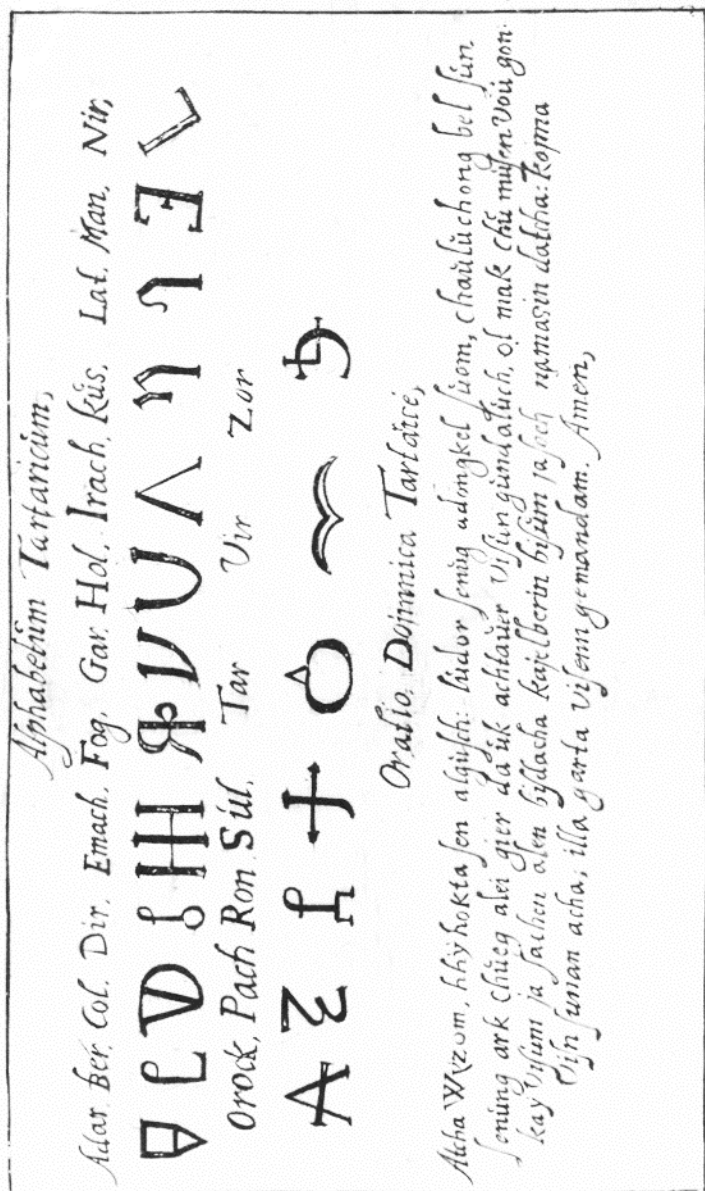 Alphabetum Tartaricum,
Adar. Ber. Col. Dir. Emach. Fog. Gar. Hol. Irach. Kus. Lat. Man. Nir,
Orock, Pach Ron. Sul. Tar Vir Zor
Oratio Dominica Tartarice,
Atcha Wyzom, hhyhokta sen algusch: ludor senug udongkel suom, chauluchong bel sun
senung ark chueg alei gier dauk achtauer Visungundaluch, ol mak chu musen Vou gon.
kay Visum ja sachen alen bysdacha kajelberin bisum ja soch namasin datcha: kojma
Visn sunan acha; illa garta Visenn gemandam. Amen,